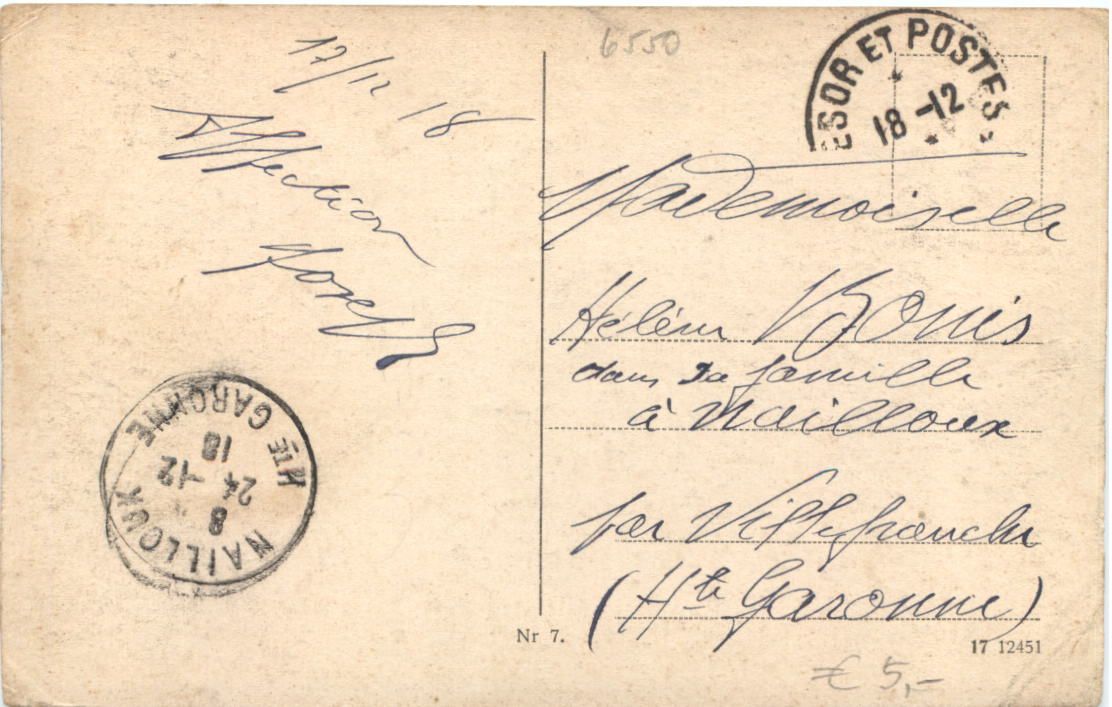 17/12 18
Affection
Joseph
6550
ESOR ET POSTES
18-12
Mademoiselle
Hélène Bonis
dans sa famille
à Nailloux
par Villefranche
(Hte Garonne)
NAILLOUX
8
24-12
18
Hte GARONNE
Nr 7.
17 12451
€ 5,-